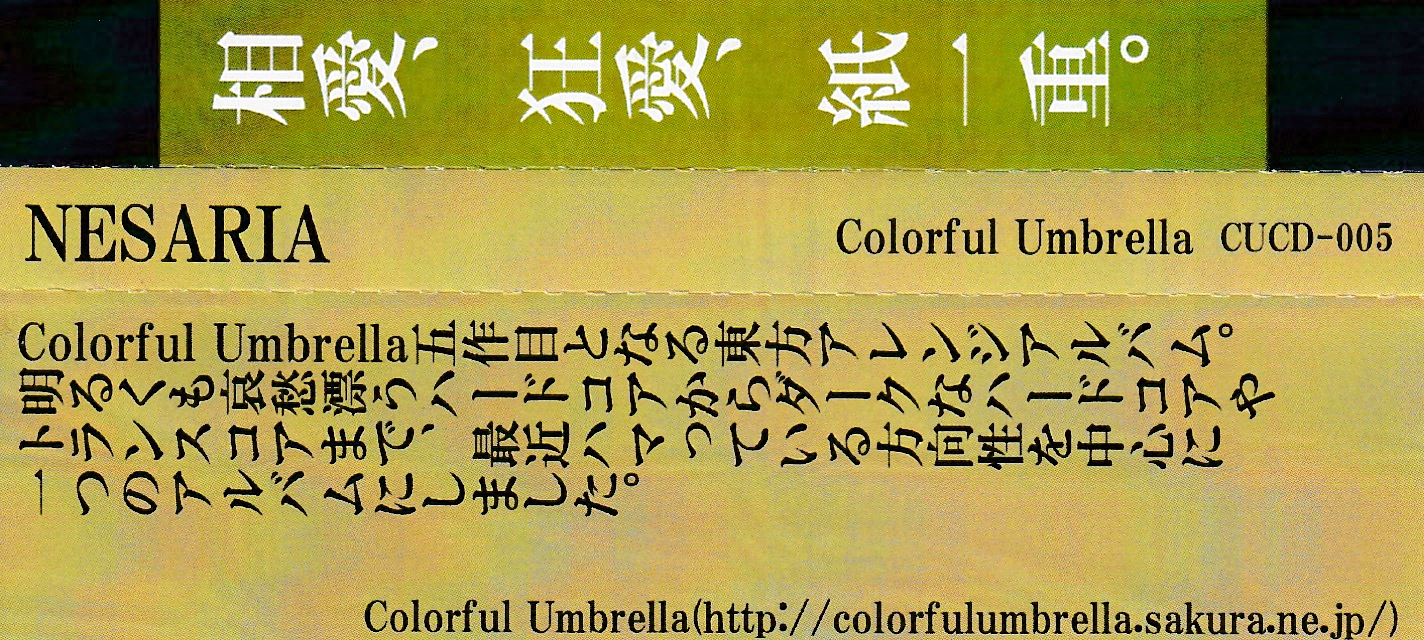 相愛、狂愛、紙一重。
NESARIA
Colorful Umbrella CUCD-005
Colorful Umbrella五作目となる東方アレンジアルバム。
明るくも哀愁漂うハードコアからダークなハードコアや
トランスコアまで、最近ハマっている方向性を中心に
一つのアルバムにしました。
Colorful Umbrella(http://colorfulumbrella.sakura.ne.jp/)